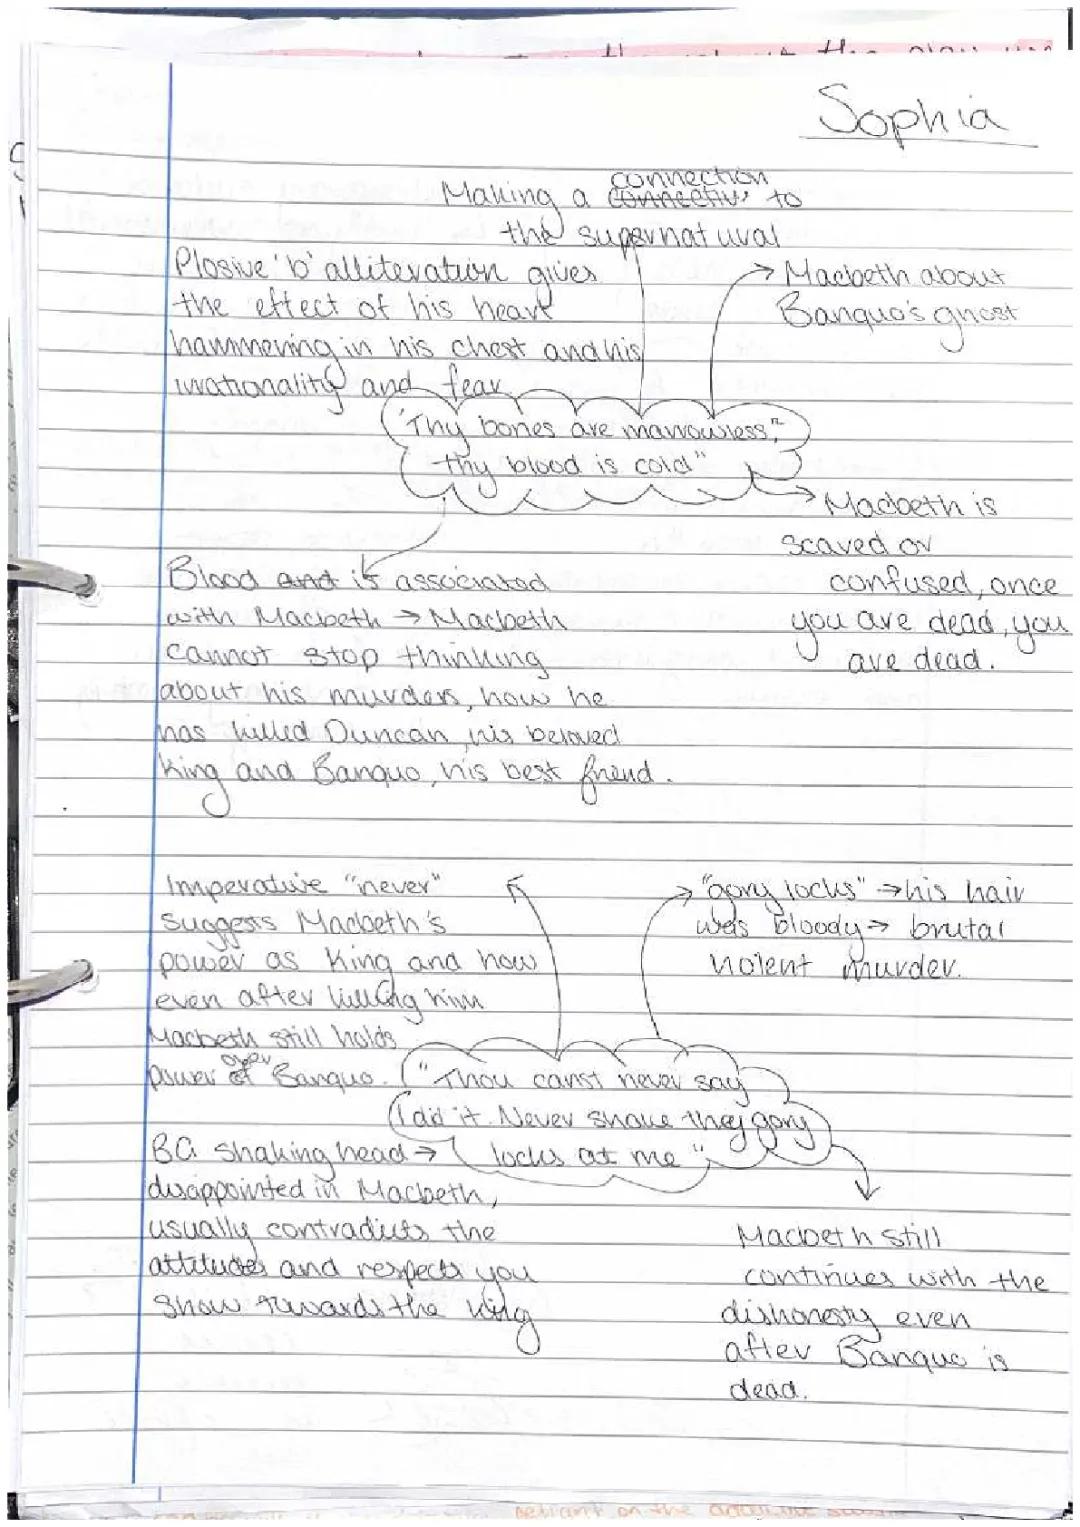 Sophia
Making a connection to
the supernatural
Plosive 'b' alliteration gives
the effect of his heart
hammering in his chest and his
irrationality and fear
→ Macbeth about
Banquo's ghost
"Thy bones are marrowless,"
thy blood is cold"
→ Macbeth is
scared or
confused, once
you are dead, you
are dead.
Blood and is associated
with Macbeth → Macbeth
cannot stop thinking
about his murders, how he
has killed Duncan, his beloved
King and Banquo, his best friend.
Imperative "never"
suggests Macbeth's
power as King and how
even after killing him
Macbeth still holds
power over Banquo.
→ "gory locks" → his hair
was bloody → brutal
violent murder.
"Thou canst never say
I did it. Never shake they gory
locks at me"
BG shaking head →
disappointed in Macbeth,
usually contradicts the
attitudes and respects you
show towards the king
Macbeth still
continues with the
dishonesty even
after Banquo is
dead.
reliant on the